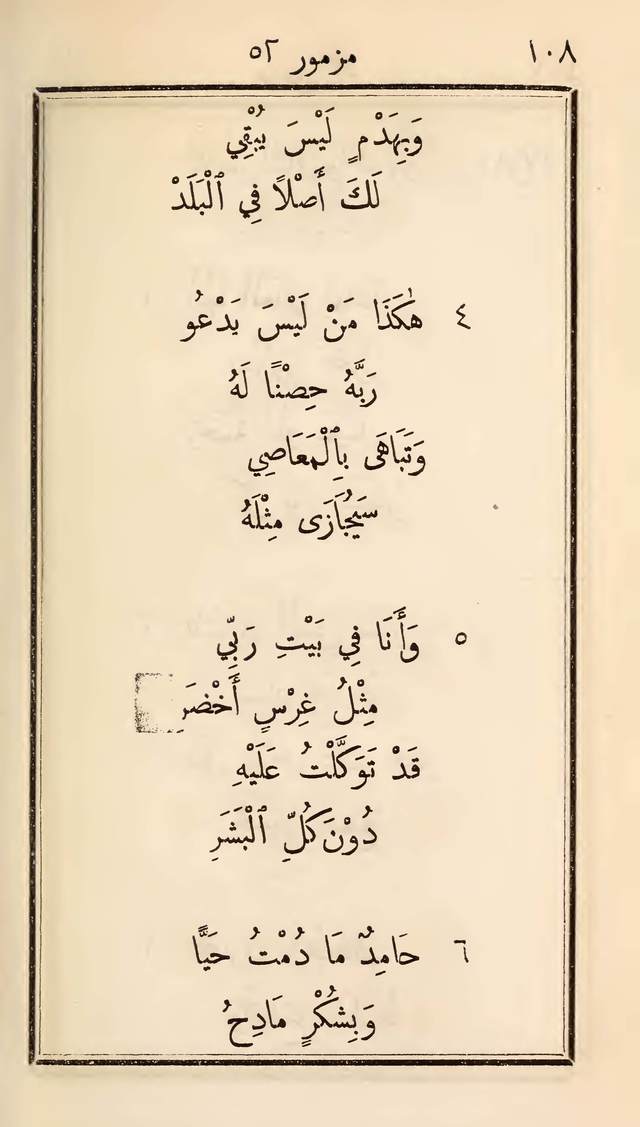 ١٠٨ مزمور ٥٢
وَبِهَدْمٍ لَيْسَ يُبْقِي
لَكَ أَصْلًا فِي ٱلْبَلَدْ
٤ هٰكَذَا مَنْ لَيْسَ يَدْعُو
رَبَّهُ حِصْنًا لَهُ
وَتَبَاهَى بِٱلْمَعَاصِي
سَيُجَازَى مِثْلَهُ
٥ وَأَنَا فِي بَيْتِ رَبِّي
مِثْلُ غِرْسٍ أَخْضَرِ
قَدْ تَوَكَّلْتُ عَلَيْهِ
دُوْنَ كُلِّ ٱلْبَشَرِ
٦ حَامِدٌ مَا دُمْتُ حَيًّا
وَبِشُكْرٍ مَادِحُ